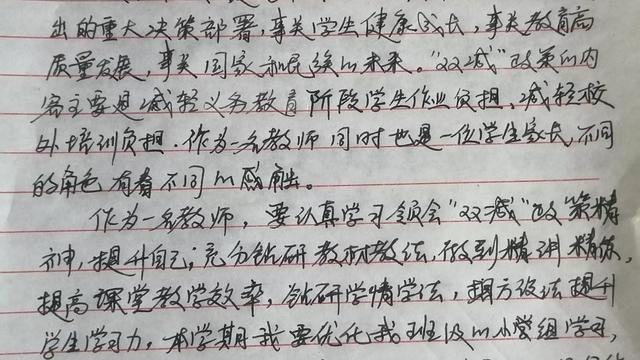 出的重大决策部署，事关学生健康成长，事关教育高
质量发展，事关国家和民族的未来。“双减”政策的内
容主要是减轻义务教育阶段学生作业负担、减轻校
外培训负担．作为一名教师同时也是一位学生家长，不同
的角色有着不同的感触。
作为一名教师，要认真学习领会“双减”政策精
神，提升自己；充分钻研教材教法，做到精讲精练，
提高课堂教学效率，钻研学情学法，想方设法提升
学生学习力，本学期我要优化我班级的小学组学习，